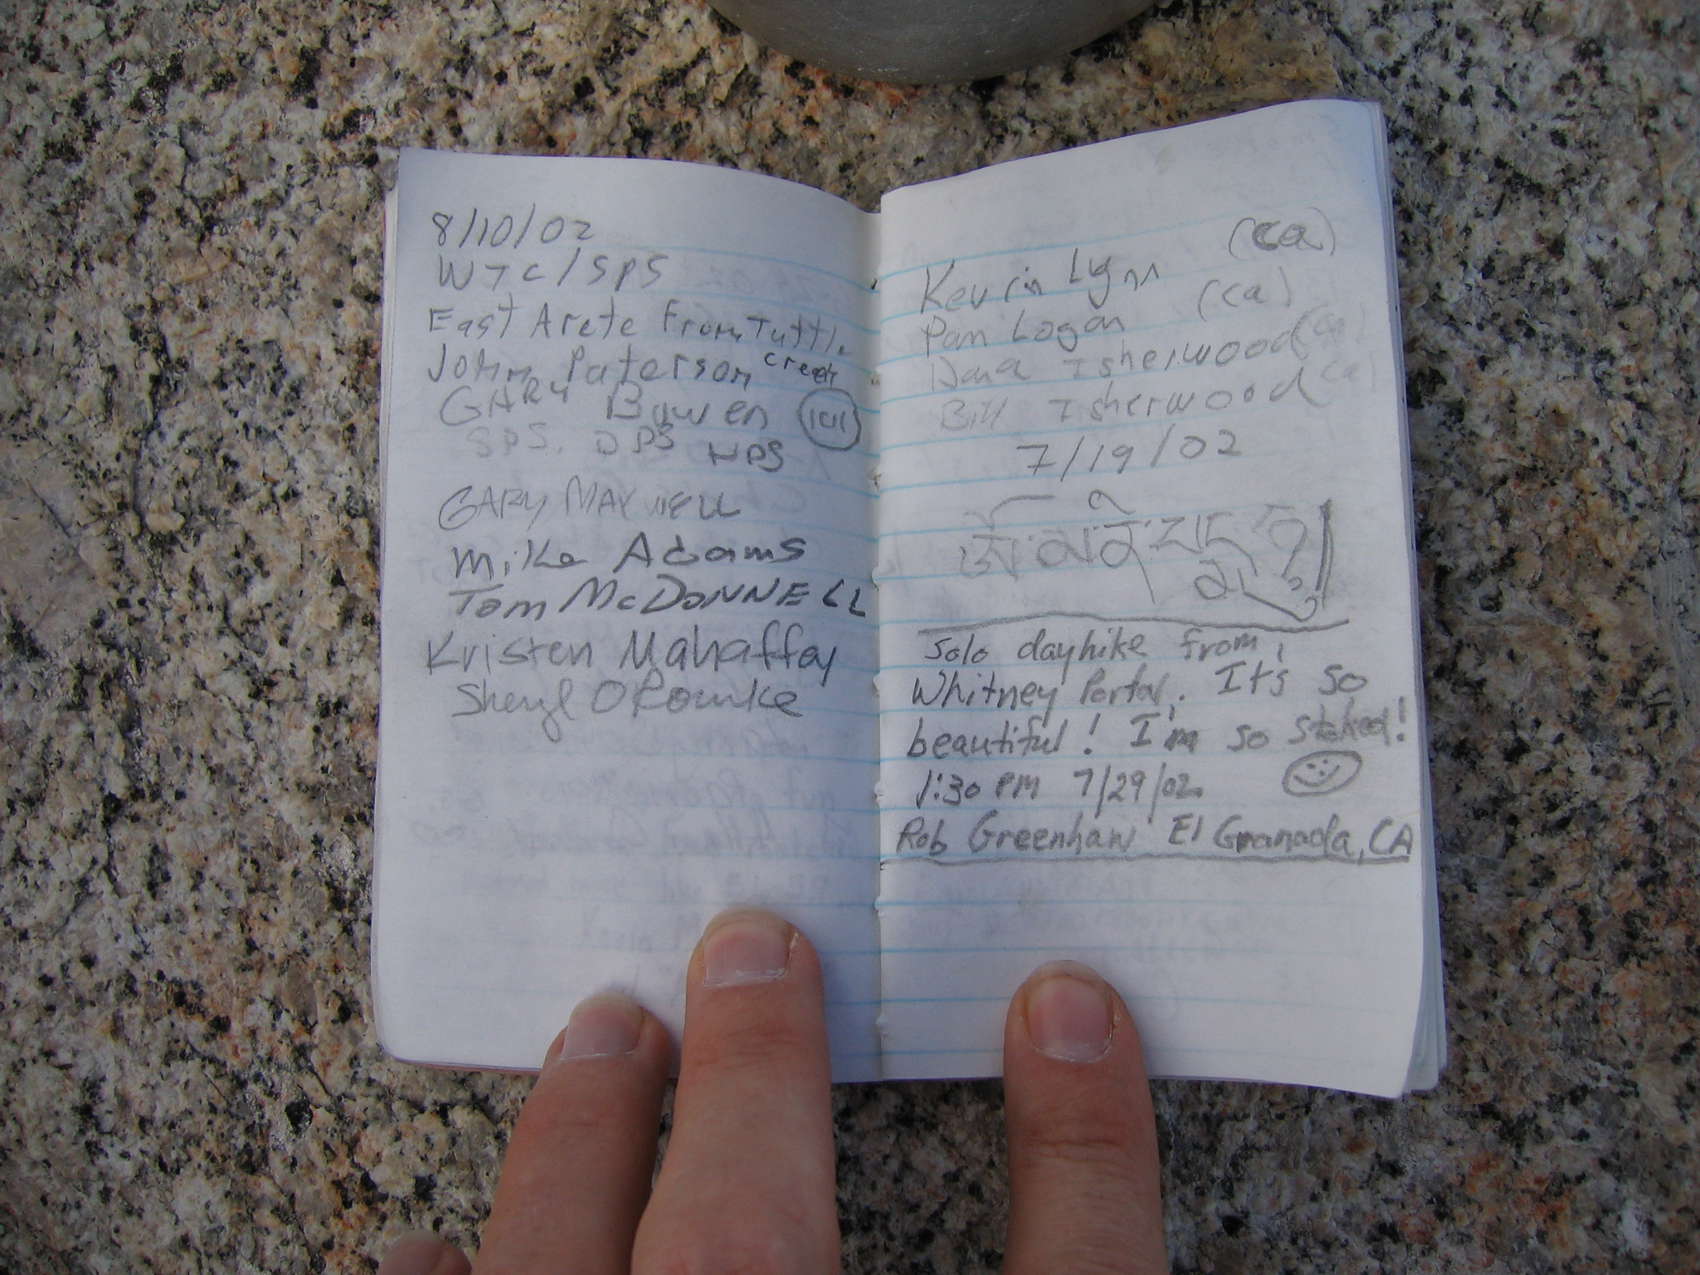 8/10/02
WTC/SPS
East Arete From Tuttle
Creek
John Paterson
GARY Bowen
SPS. DPS HPS
GARY MAXWELL
Mike Adams
Tom McDONNELL
Kristen Mahaffey
Sheryl O'Rourke
Kevin Lynn (ca)
Pam Logan (ca)
Dana Isherwood (ca)
Bill Isherwood (ca)
7/19/02
Solo dayhike from
Whitney Portal. It's so
beautiful! I'm so stoked!
1:30 PM 7/29/02
Rob Greenhaw El Granada, CA